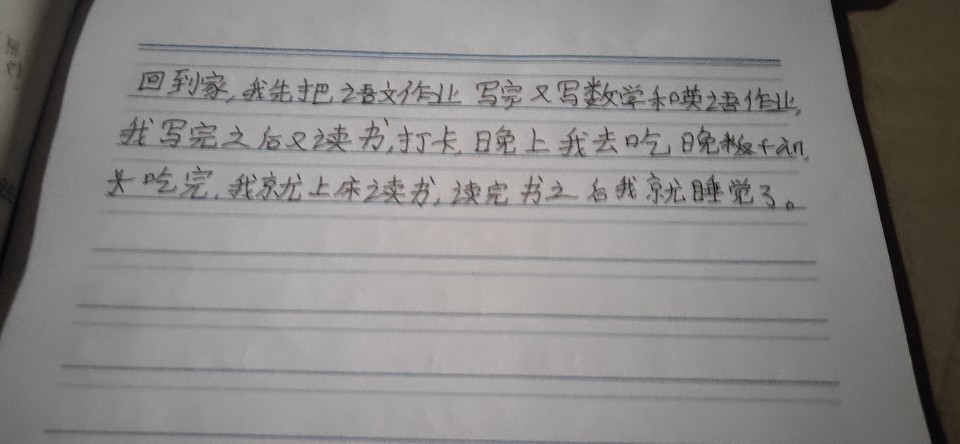 回到家,我先把语文作业 写完又写数学和英语作业,
我写完之后又读书,打卡,晚上我去吃晚fàn,
吃完,我就上床读书,读完书之后我就睡觉了。